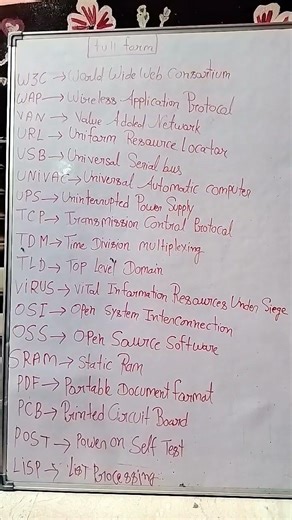 Full form
W3C → World Wide Web Consortium
WAP → Wireless Application Protocol
VAN → Value Added Network
URL → Uniform Resource Locator
USB → Universal Serial bus
UNIVAC → Universal Automatic computer
UPS → Uninterrupted Power Supply
TCP → Transmission Control Protocol
TDM → Time Division multiplexing
TLD → Top Level Domain
ViRUS → Vital Information Resources Under Siege
OSI → Open System Interconnection
OSS → Open Source Software
SRAM → Static Ram
PDF → Portable Document format
PCB → Printed Circuit Board
POST → Power on Self Test
LISP → List Processing